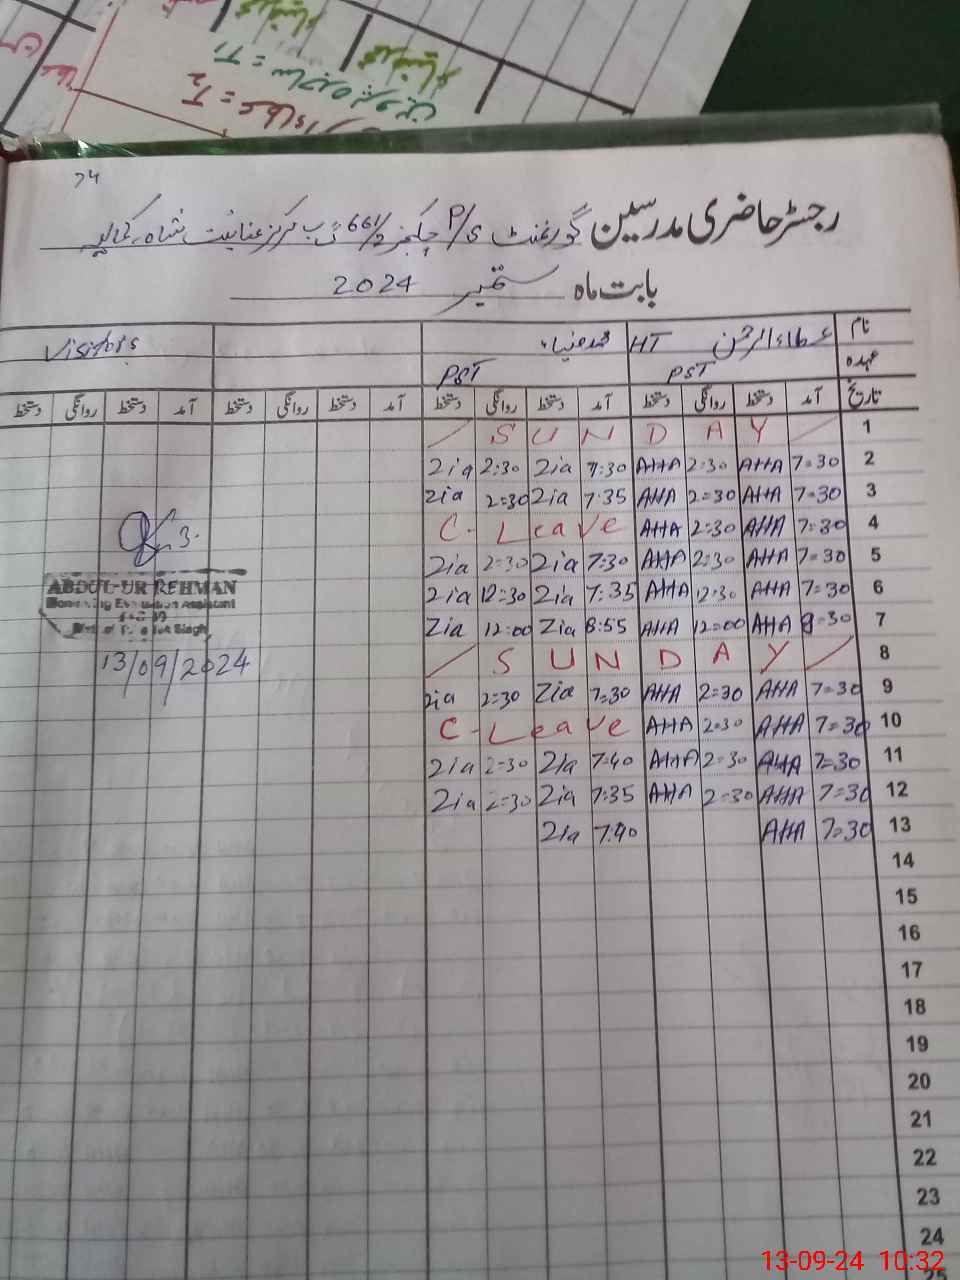 24
رجسٹر حاضری مدرسین گورنمنٹ P/S چک نمبر 661/2 گ ب مرکز عنایت شاہ، کمالیہ
بابت ماہ ستمبر 2024
نام عطاء الرحمن HT محمد ضیاء Visitors
عہدہ PST PST
تاریخ آمد دستخط روانگی دستخط آمد دستخط روانگی دستخط آمد دستخط روانگی دستخط آمد دستخط روانگی دستخط
SUNDAY 1
Zia 2:30 Zia 7:30 AHA 2:30 AHA 7:30 2
Zia 2:30 Zia 7:35 AHA 2:30 AHA 7:30 3
C-Leave AHA 2:30 AHA 7:30 4
Zia 2:30 Zia 7:30 AHA 2:30 AHA 7:30 5
Zia 12:30 Zia 7:35 AHA 12:30 AHA 7:30 6
Zia 12:00 Zia 8:55 AHA 12:00 AHA 8:30 7
SUNDAY 8
Zia 2:30 Zia 7:30 AHA 2:30 AHA 7:30 9
C-Leave AHA 2:30 AHA 7:30 10
Zia 2:30 Zia 7:40 AHA 2:30 AHA 7:30 11
Zia 2:30 Zia 7:35 AHA 2:30 AHA 7:30 12
Zia 7:40 AHA 7:30 13
14
15
16
17
18
19
20
21
22
23
24
25
ABDUL-UR REHMAN
Assistant
13/09/2024
13-09-24 10:32